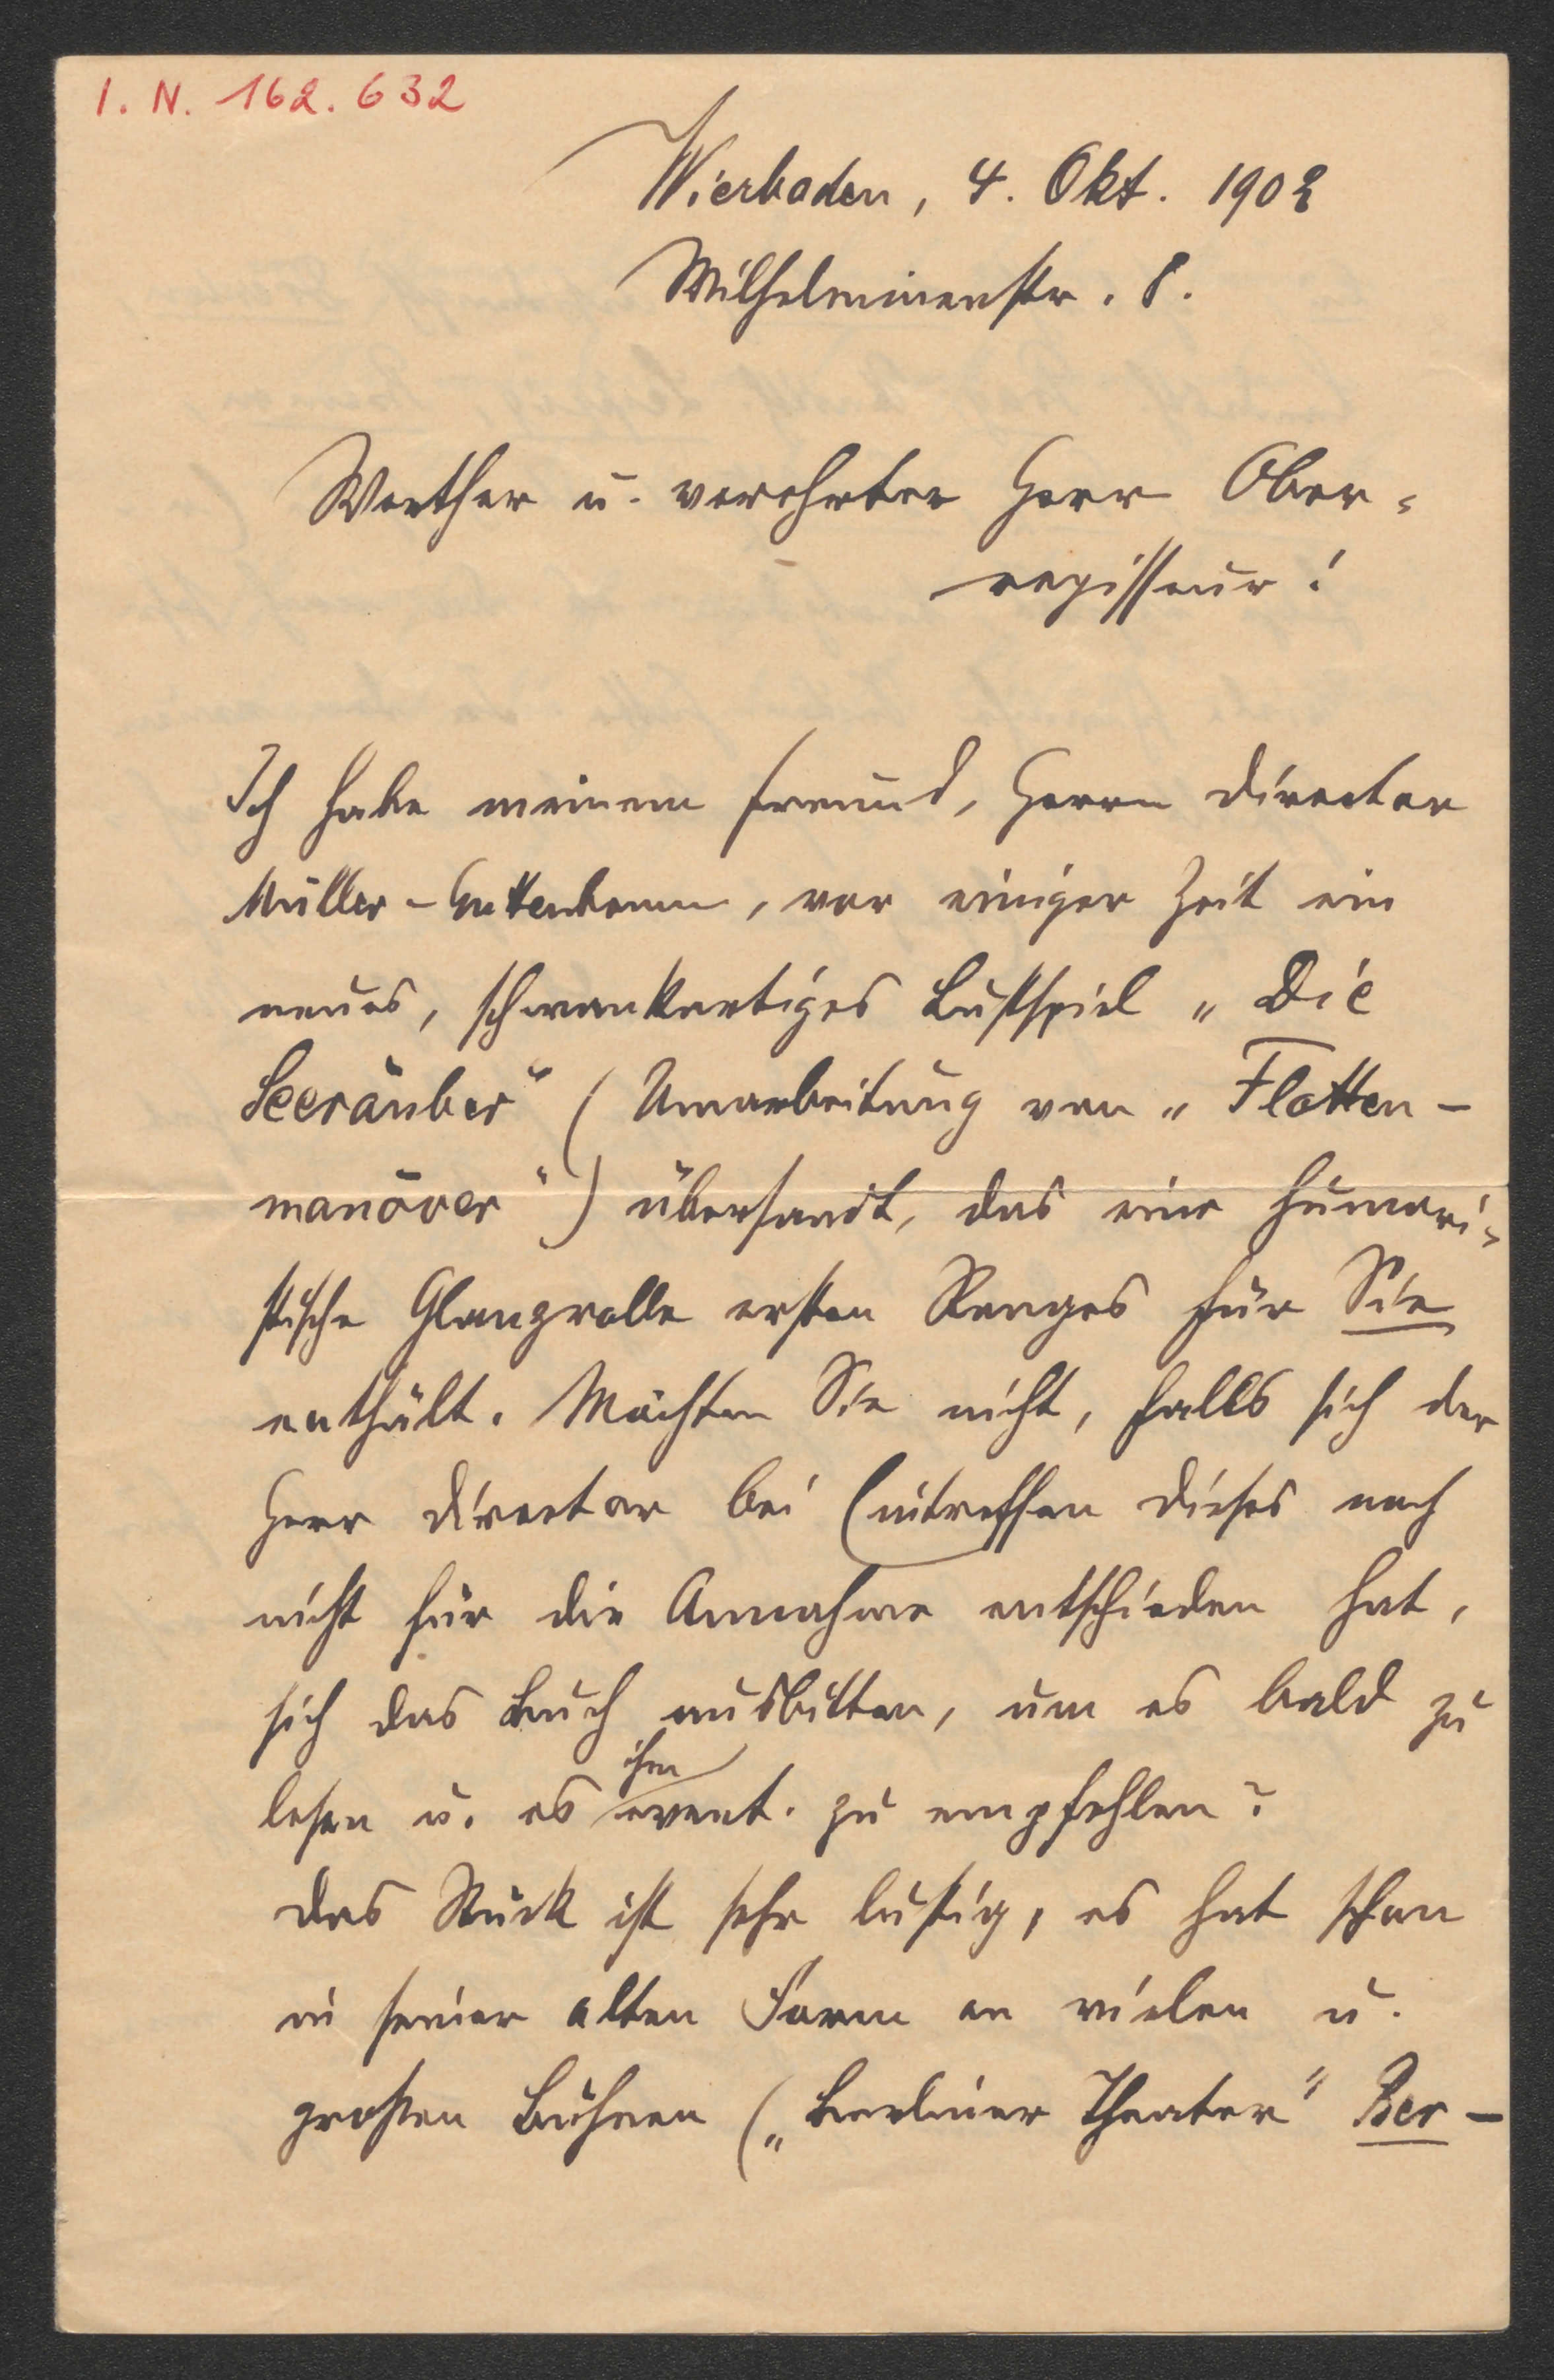 I. N. 162.632
Wiesbaden, 4. Okt. 1902
Wilhelminenstr. 8.
Werther u. verehrter Herr Ober-
regisseur!
Ich habe meinem Freund, Herrn Director
Müller-Guttenbrunn, vor einiger Zeit ein
neues, schwankartiges Lustspiel „Die
Seeräuber“ (Umarbeitung von „Flotten-
manöver“) übersandt, das eine humori-
stische Glanzrolle ersten Ranges für Sie
enthält. Möchten Sie nicht, falls sich der
Herr Director bei Eintreffen dieses noch
nicht für die Annahme entschieden hat,
sich das Buch ausbitten, um es bald zu
lesen u. es ihm event. zu empfehlen?
Das Stück ist sehr lustig, es hat schon
in seiner alten Form an vielen u.
großen Bühnen („Berliner Theater“ Ber-